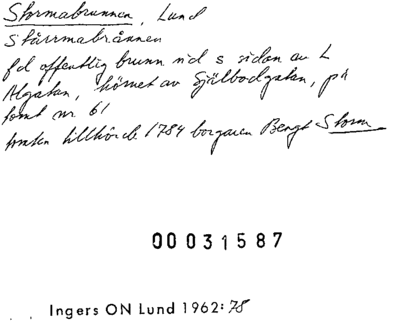 Stormabrunnen, Lund
Stårrmabrånnen
fd offentlig brunn vid s sidan av L
Algatan, hörnet av Själbodgatan, på
tomt nr 61
tomten tillhörde 1784 borgaren Bengt Storm
00031587
Ingers ON Lund 1962:78